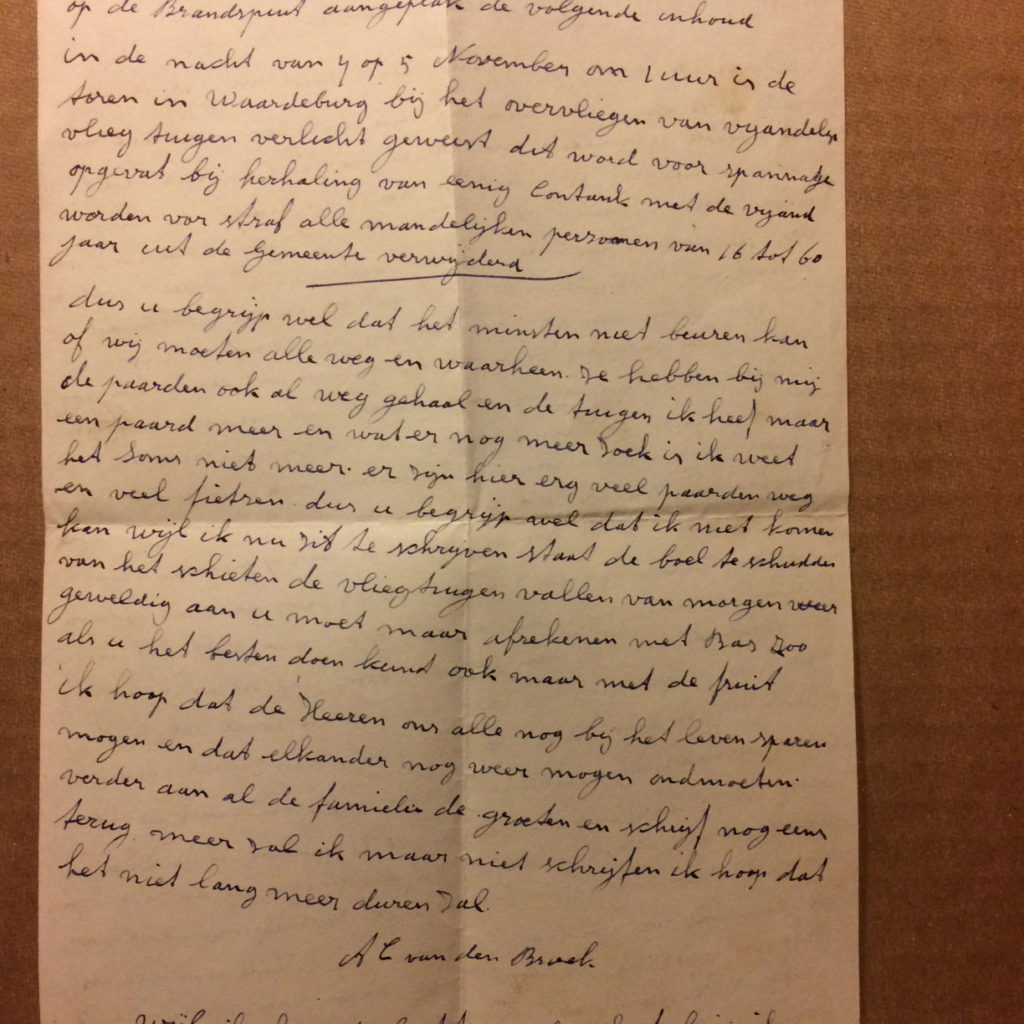 op de Brandspuit aangeplak de volgende inhoud
in de nacht van 4 op 5 November om 1 uur is de
toren in Waardeburg bij het overvliegen van vyandelyk
vlieg tuigen verlicht geweest dit word voor spannage
opgevat bij herhaling van eenig Contank met de vyand
worden vor straf alle mandelijken personen van 16 tot 60
jaar uit de Gemeente verwijderd
dus u begrijp wel dat het minsten niet beuren kan
of wij moeten alle weg en waarheen. Ze hebben bij mij
de paarden ook al weg gehaal en de tuigen ik heef maar
een paard meer en wat er nog meer zoek is ik weet
het soms niet meer. er zijn hier erg veel paarden weg
en veel fietsen. dus u begrijp wel dat ik niet komen
kan wijl ik nu zit te schrijven staat de boel te schudden
van het schieten de vliegtuigen vallen van morgen weer
geweldig aan u moet maar afrekenen met Bas zoo
als u het besten doen kunt ook maar met de fruit
ik hoop dat de Heeren ons alle nog bij het leven sparen
mogen en dat elkander nog weer mogen ondmoeten.
verder aan al de familie de groeten en schrijf nog eens
terug. meer zal ik maar niet schrijfen ik hoop dat
het niet lang meer duren zal.
A C van den Broek